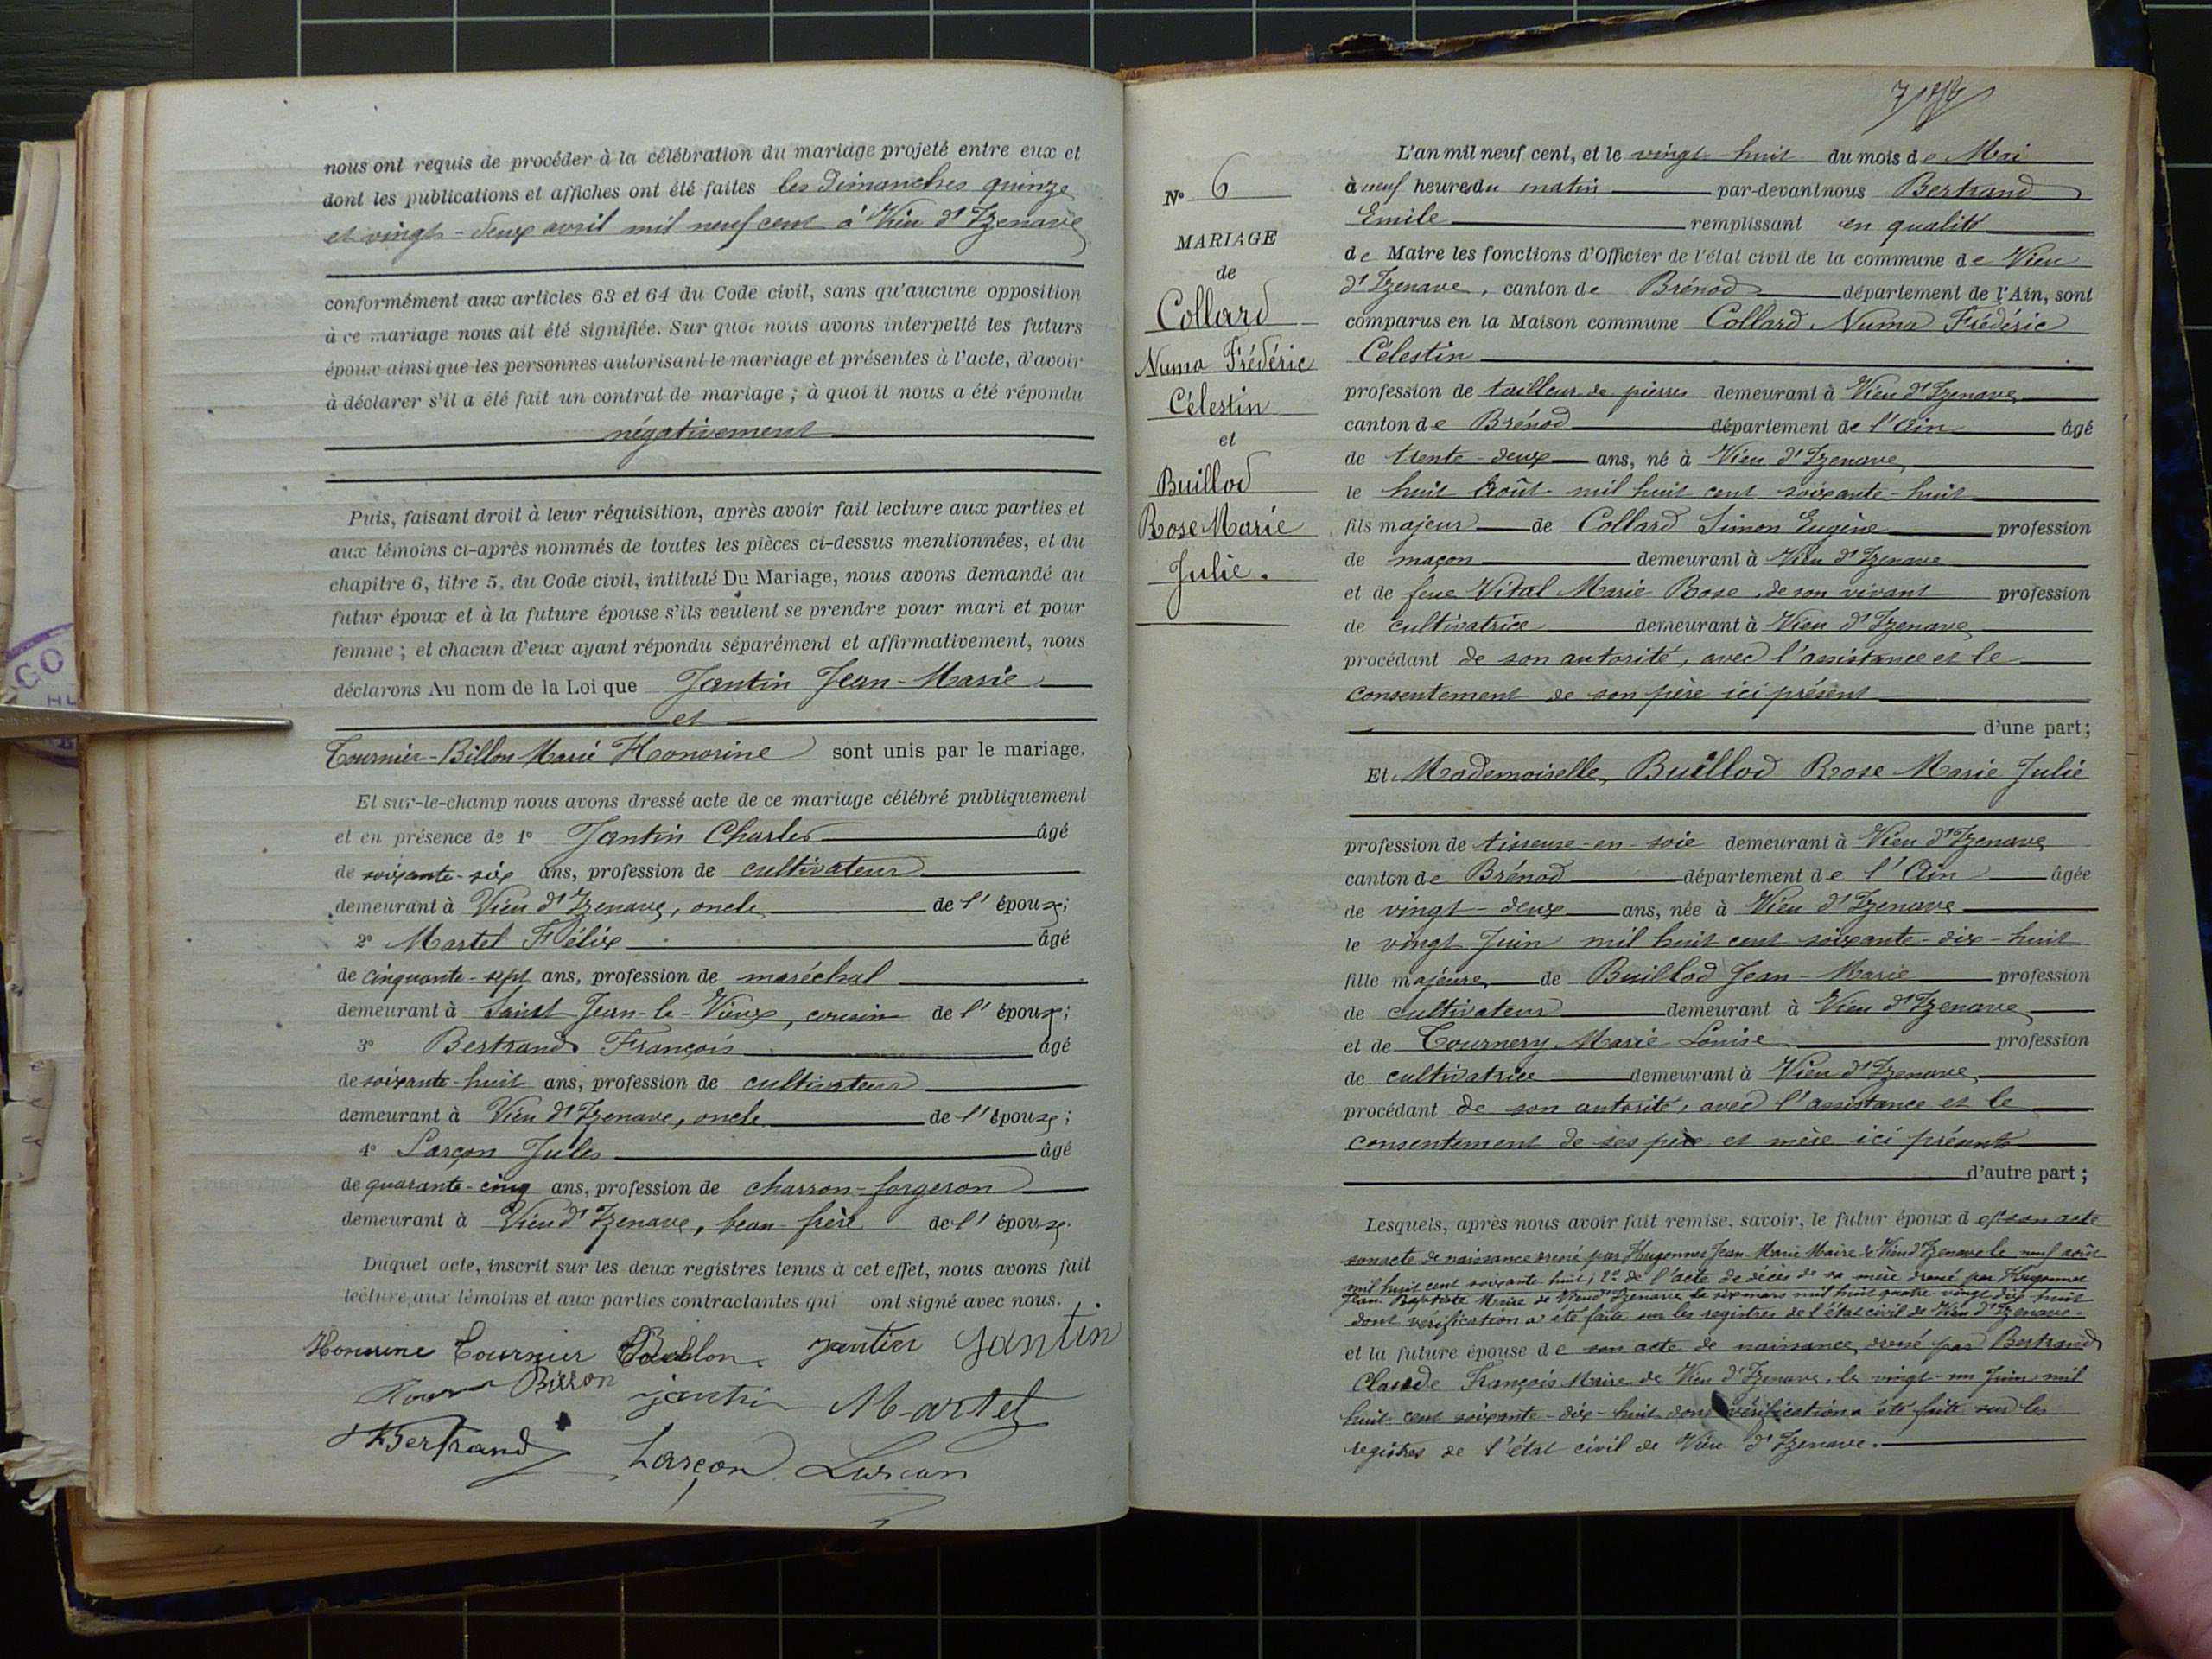 nous ont requis de procéder à la célébration du mariage projeté entre eux et
dont les publications et affiches ont été faites les dimanches quinze
et vingt-deux avril mil neuf cent à Vieu d'Izenave
conformément aux articles 63 et 64 du Code civil, sans qu'aucune opposition
à ce mariage nous ait été signifiée. Sur quoi nous avons interpellé les futurs
époux ainsi que les personnes autorisant le mariage et présentes à l'acte, d'avoir
à déclarer s'il a été fait un contrat de mariage ; à quoi il nous a été répondu
négativement
Puis, faisant droit à leur réquisition, après avoir fait lecture aux parties et
aux témoins ci-après nommés de toutes les pièces ci-dessus mentionnées, et du
chapitre 6, titre 5, du Code civil, intitulé Du Mariage, nous avons demandé au
futur époux et à la future épouse s'ils veulent se prendre pour mari et pour
femme ; et chacun d'eux ayant répondu séparément et affirmativement, nous
déclarons Au nom de la Loi que Jantin Jean-Marie
et
Tournier-Billon Marie Honorine sont unis par le mariage.
Et sur-le-champ nous avons dressé acte de ce mariage célébré publiquement
et en présence de 1° Jantin Charles âgé
de soixante-six ans, profession de cultivateur
demeurant à Vieu d'Izenave, oncle de l'époux;
2° Martel Félix âgé
de cinquante-sept ans, profession de maréchal
demeurant à Saint Jean-le-Vieux, cousin de l'époux;
3° Bertrand François âgé
de soixante-huit ans, profession de cultivateur
demeurant à Vieu d'Izenave, oncle de l'épouse;
4° Larçon Jules âgé
de quarante-cinq ans, profession de charron-forgeron
demeurant à Vieu d'Izenave, beau-frère de l'épouse.
Duquel acte, inscrit sur les deux registres tenus à cet effet, nous avons fait
lecture aux témoins et aux parties contractantes qui ont signé avec nous.
Honorine Tournier Billon. Jantin Jantin
Billon Jantin Martel
Bertrand Larçon
N° 6
MARIAGE
de
Collard
Numa Frédéric
Célestin
et
Buillod
Rose Marie
Julie.
L'an mil neuf cent, et le vingt-huit du mois de Mai
à neuf heures du matin par-devant nous Bertrand
Emile remplissant en qualité
de Maire les fonctions d'Officier de l'état civil de la commune de Vieu
d'Izenave, canton de Brénod département de l'Ain, sont
comparus en la Maison commune Collard Numa Frédéric
Célestin
profession de tailleur de pierres demeurant à Vieu d'Izenave
canton de Brénod département de l'Ain âgé
de trente-deux ans, né à Vieu d'Izenave
le huit Août mil huit cent soixante-huit
fils majeur de Collard Simon Eugène profession
de maçon demeurant à Vieu d'Izenave
et de feue Vital Marie Rose, de son vivant profession
de cultivatrice demeurant à Vieu d'Izenave
procédant de son autorité, avec l'assistance et le
consentement de son père ici présent
d'une part;
Et Mademoiselle, Buillod Rose Marie Julie
profession de tisseuse-en-soie demeurant à Vieu d'Izenave
canton de Brénod département de l'Ain âgée
de vingt-deux ans, née à Vieu d'Izenave
le vingt Juin mil huit cent soixante-dix-huit
fille majeure de Buillod Jean-Marie profession
de cultivateur demeurant à Vieu d'Izenave
et de Tournery Marie Louise profession
de cultivatrice demeurant à Vieu d'Izenave
procédant de son autorité, avec l'assistance et le
consentement de ses père et mère ici présents
d'autre part ;
Lesquels, après nous avoir fait remise, savoir, le futur époux d son acte
son acte de naissance dressé par Hugonnet Jean-Marie Maire de Vieu d'Izenave le neuf août
mil huit cent soixante huit; 2° de l'acte de décès de sa mère dressé par Hugonnet
Jean Baptiste Maire de Vieu d'Izenave le dix mars mil huit quatre vingt dix huit
dont vérification a été faite sur les registres de l'état civil de Vieu d'Izenave.
et la future épouse de son acte de naissance, dressé par Bertrand
Claude François Maire de Vieu d'Izenave, le vingt-un Juin mil
huit cent soixante-dix-huit dont vérification a été faite sur les
registres de l'état civil de Vieu d'Izenave.